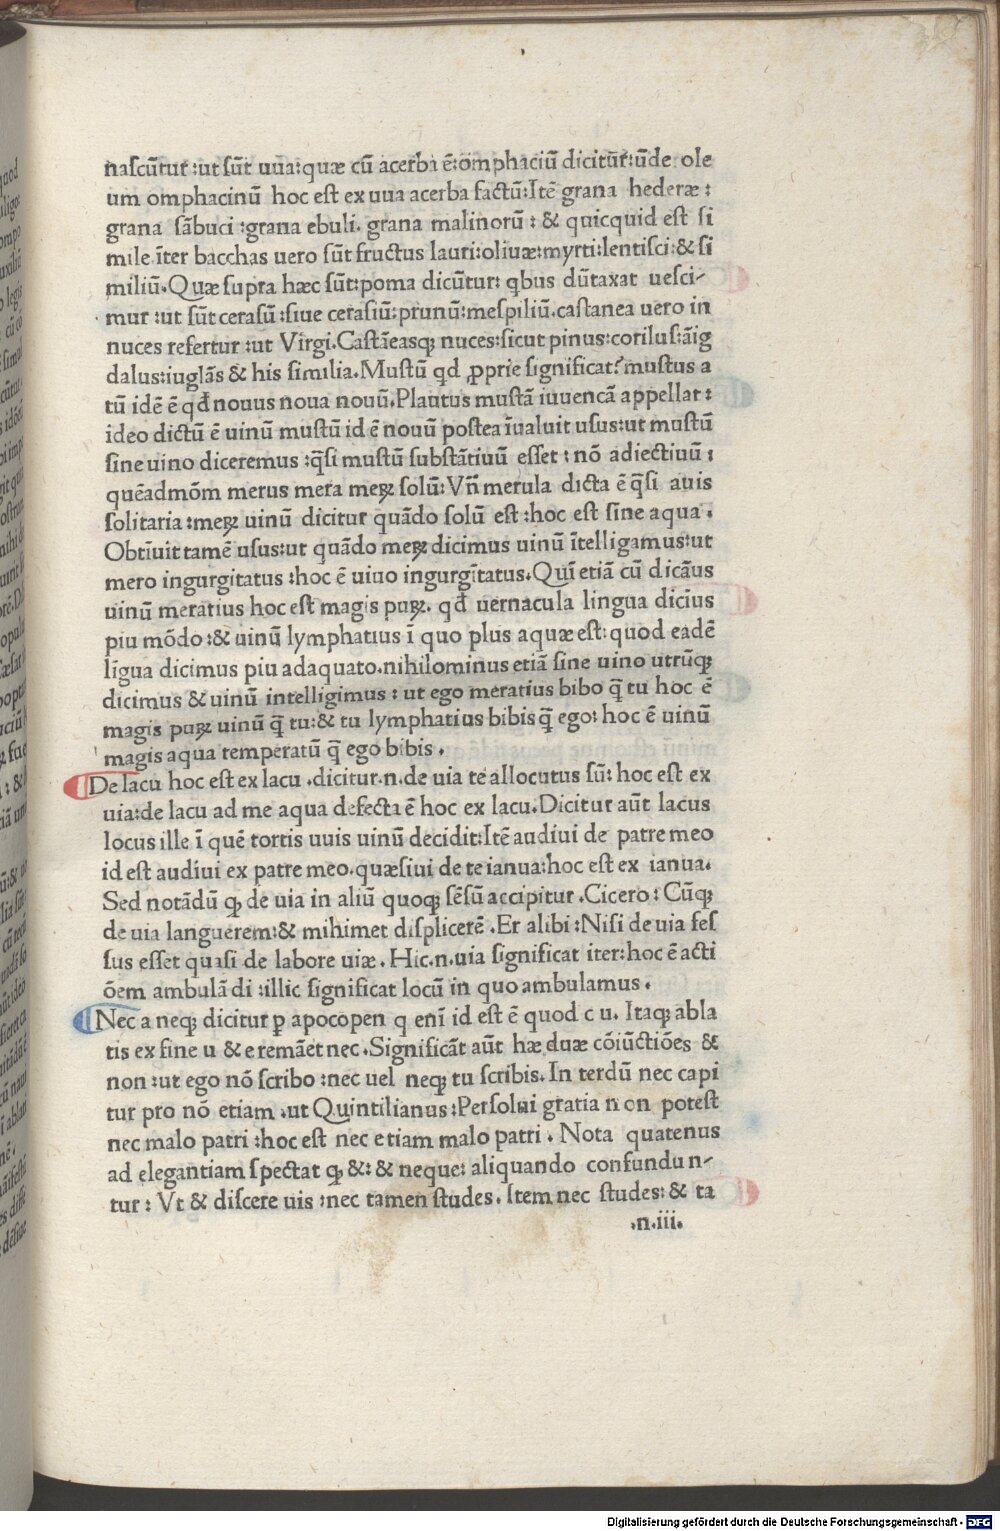 naſcūtur :ut ſūt uua:quæ cū acerba ē:omphaciū dicitur̄:ūde ole
um omphacinū hoc eſt ex uua acerba factū:Itē grana hederæ :
grana ſābuci :grana ebuli. grana malinorū : & quicquid eſt ſi
mile īter bacchas uero ſūt fructus lauri:oliuæ:myrti:lentiſci:& ſi
miliū.Quæ ſupra hæc ſūt:poma dicūtur: qbus dūtaxat ueſci-
mur :ut ſūt ceraſū :ſiue ceraſiū:prunū:meſpiliū.caſtanea uero in
nuces refertur :ut Virgi.Caſtāeasqꝫ nuces:ſicut pinus:corilus:āig
dalus:iuglās & his ſimilia.Muſtū qd ꝓprie ſignificat?muſtus a
tū idē ē qđ nouus noua nouū.Plautus muſtā iuuencā appellat :
ideo dictū ē uinū muſtū id ē nouū poſtea īualuit uſus:ut muſtū
ſine uino diceremus :q̄ſi muſtū ſubſtātiuū eſſet : nō adiectiuū :
quēadmōm merus mera meꝝ ſolū: Vn̄ merula dicta ē q̄ſi auis
ſolitaria :meꝝ uinū dicitur quādo ſolū eſt :hoc eſt ſine aqua .
Obtīuit tamē uſus:ut quādo meꝝ dicimus uinū ītelligamus:ut
mero ingurgitatus :hoc ē uiuo ingurgītatus.Quī etiā cū dicāus
uinū meratius hoc eſt magis puꝝ. qđ uernacula lingua dicīus
piu mōdo :& uinū lymphatius ī quo plus aquæ eſt: quod eadē
līgua dicimus piu adaquato.nihilominus etiā ſine uino utrūqꝫ
dicimus & uinū intelligimus : ut ego meratius bibo q̄ tu hoc ē
magis puꝝ uinū q̄ tu:& tu lymphatius bibis q̄ ego: hoc ē uinū
magis aqua temperatū q̄ ego bibis .
De lacu hoc eſt ex lacu .dicitur.n.de uia te allocutus ſū: hoc eſt ex
uia:de lacu ad me aqua defecta ē hoc ex lacu.Dicitur aūt lacus
locus ille ī quē tortis uuis uinū decidit:Itē audiui de patre meo
id eſt audiui ex patre meo.quæſiui de te ianua:hoc eſt ex ianua.
Sed notādū qꝫ de uia in aliū quoqꝫ ſēſū accipitur .Cicero : Cūqꝫ
de uia languerem:& mihimet diſplicerē .Et alibi :Niſi de uia feſ
ſus eſſet quaſi de labore uiæ . Hic.n.uia ſignificat iter:hoc ē acti
ōem ambulā di :illic ſignificat locū in quo ambulamus .
Nec a neqꝫ dicitur ꝑ apocopen q enī id eſt ē quod c u. Itaqꝫ abla
tis ex fine u & e remāet nec .Significāt aūt hæ duæ cōiūctiōes &
non :ut ego nō ſcribo :nec uel neqꝫ tu ſcribis. In terdū nec capi
tur pro nō etiam .ut Quintilianus :Perſolui gratia non poteſt
nec malo patri :hoc eſt nec etiam malo patri . Nota quatenus
ad elegantiam ſpectat qꝫ &: & neque: aliquando confundun-
tur : Vt & diſcere uis :nec tamen ſtudes. Item nec ſtudes: & ta
.n.iii.
Digitalisierung gefördert durch die Deutsche Forschungsgemeinschaft - DFG